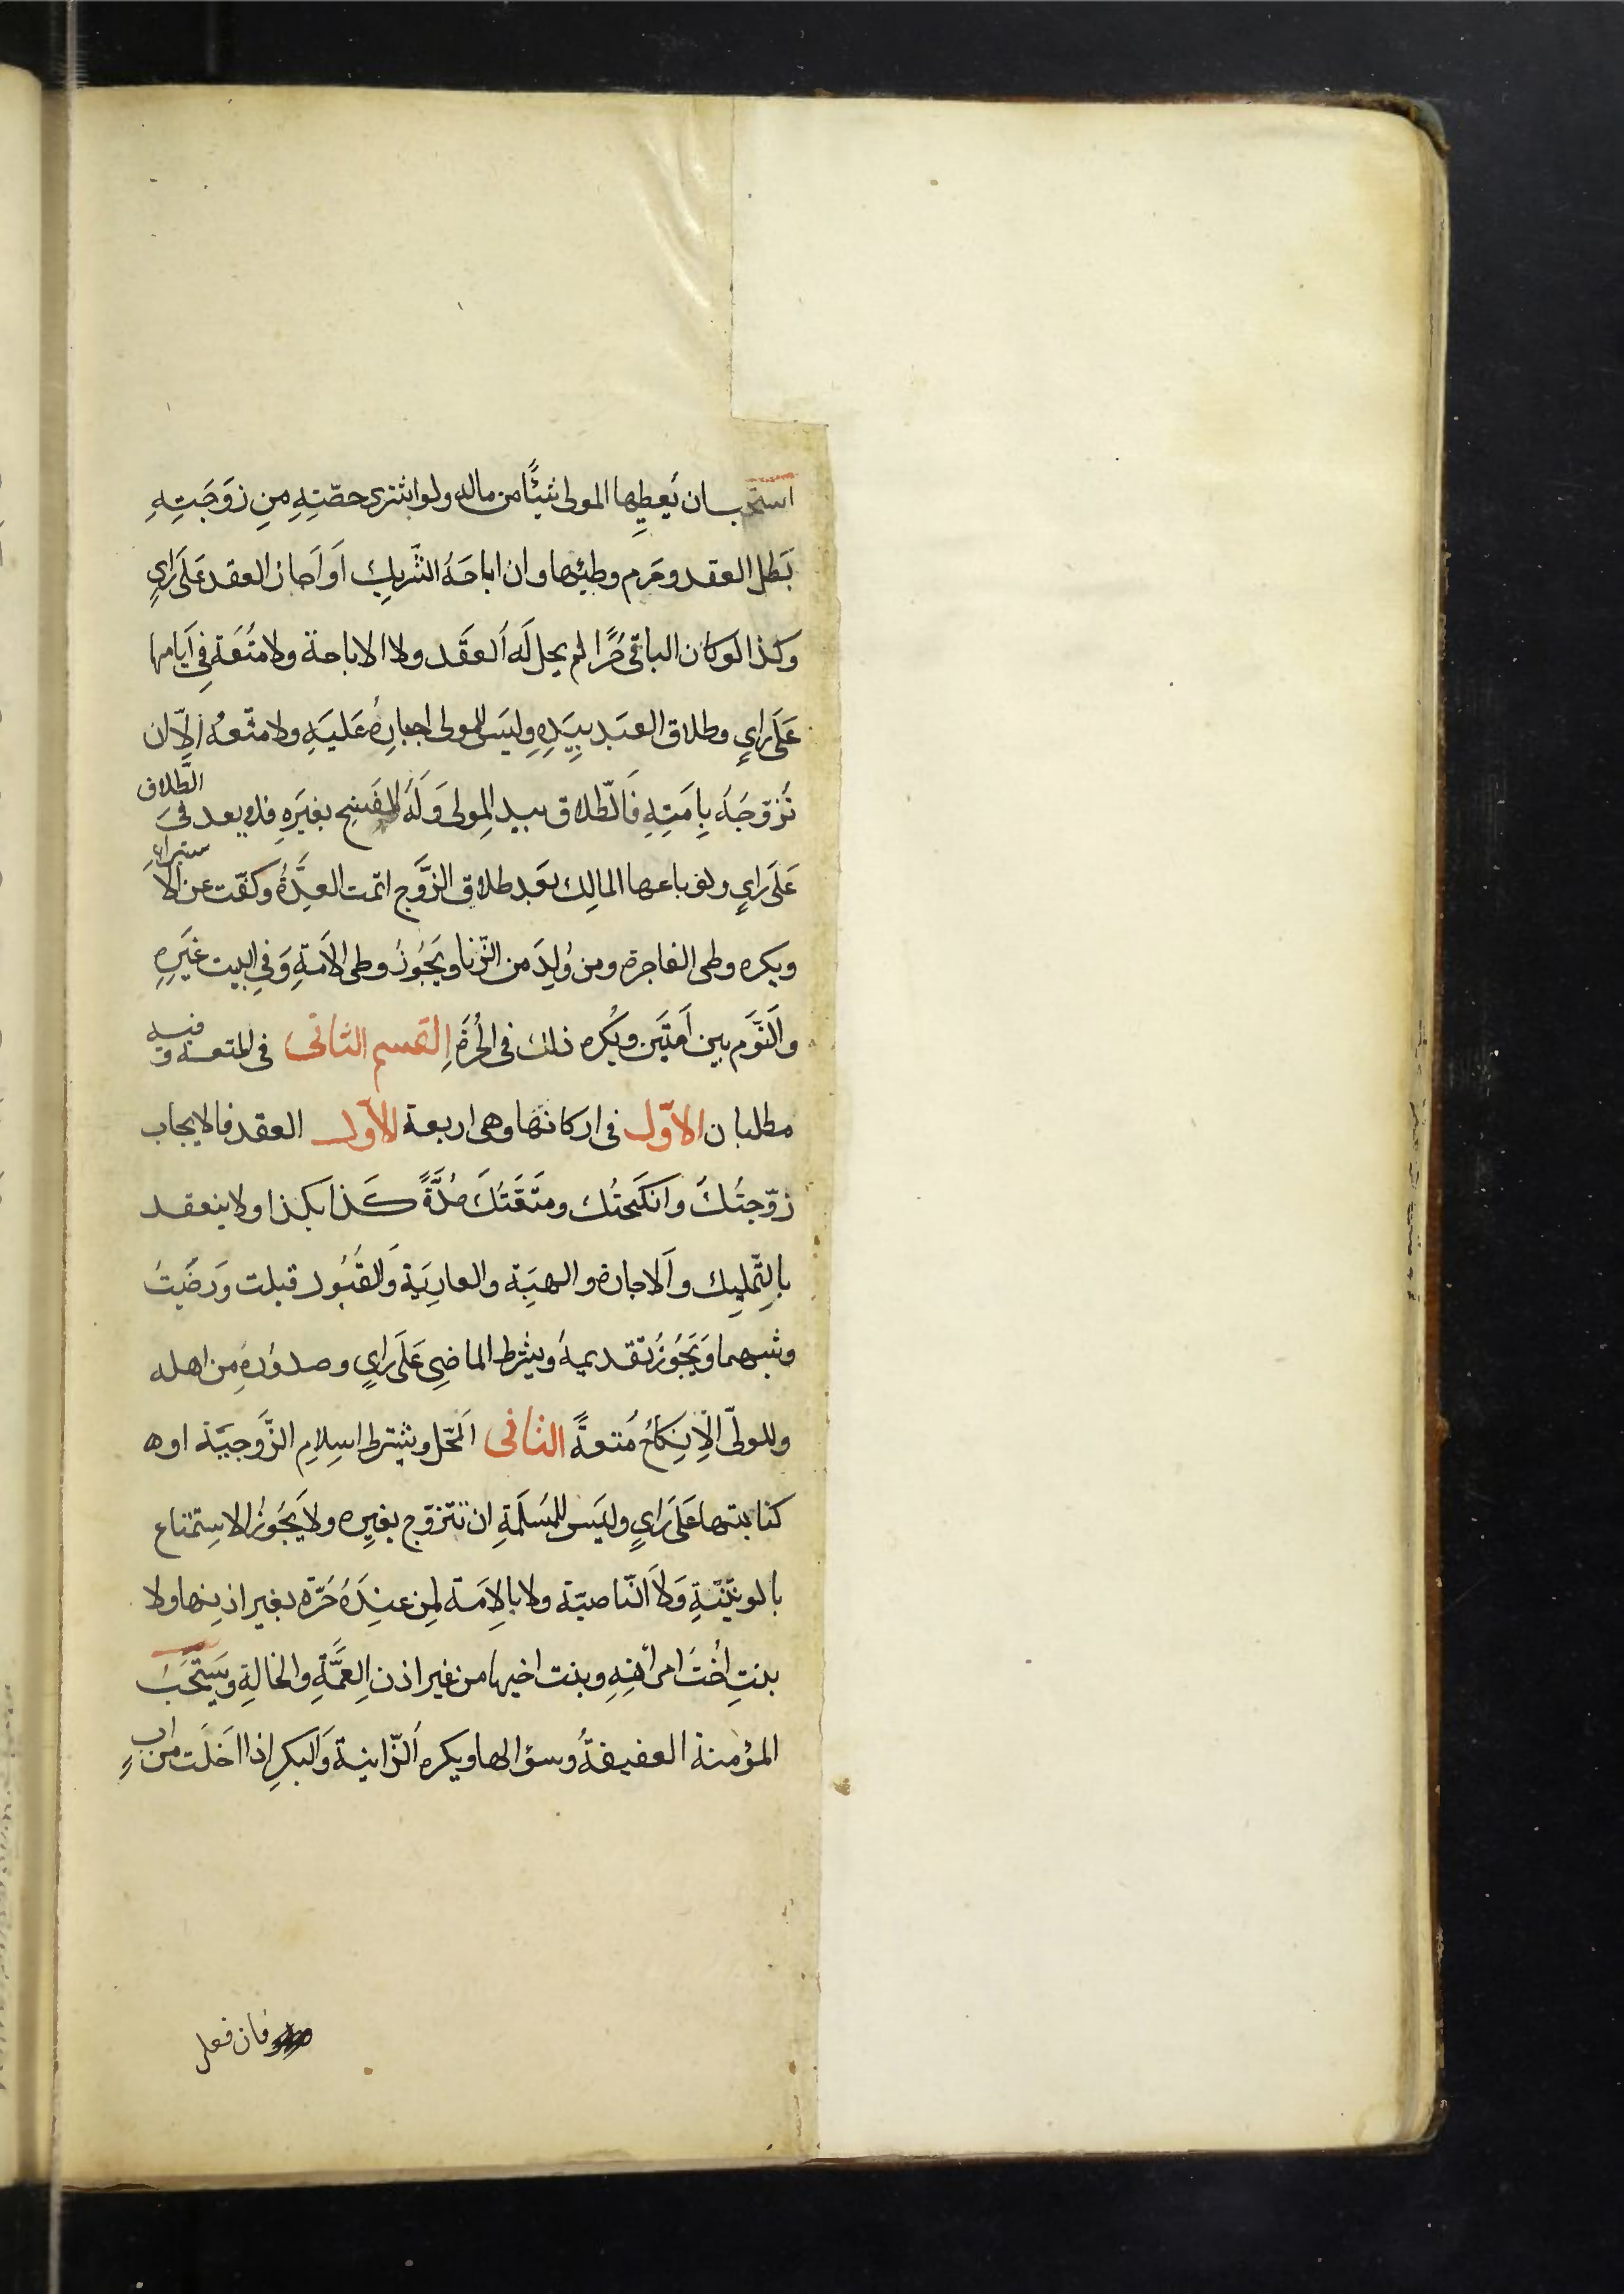 استحب ان يُعطِيها المولى شيئًا من ماله ولو اشترى حصّتِهِ مِن زَوجَتِهِ
بَطل العقد وحرم وطيئها وان اباحَهُ الشَّرِيك اَو اَجاز العقد عَلَى رايٍ
وكذا لو كان الباقى حُرًّا لم يحل لَه العقَد ولا الاباحة ولا مُتُعَة فِي اَيامها
عَلَى رايٍ وطلاق العَبد بِيَدِهِ وليَس للمولى اجبارِهُ عَليَهِ ولا متّعهُ اِلاّ ان
تُزوّجَهُ بِاَمَتِهِ فَالطّلاق بيد المِولى وَلَهُ الفَسِخ بغيَرِهِ فلا يعد فىَ الطَّلاق
عَلَى رايٍ ولو باعها المالِك بَعد طلاق الزَّوج اتمت العِدَّةُ وكفّت عن الاَستبراءِ
ويكره وطى الفاجرة ومن وُلِدَ من الزّنا ويَجُوزُ وطى الاَمَةِ وَفِي البيت غيَرِهِ
والَنَّوَم بين اَمتَين ويُكره ذلك فى الحُرَةَ اِلقسم الثانى فى المتعة وفيه
مطلبان الاوّل فى اركانها وهى اربعة الاوّل العقد فالايجاب
زوّجتُكَ وانكَحتُك ومتّعَتُكَ مُدَّةً كَذا بكذا ولا ينعقد
بِالتّملِيك واَلاجارة والهِبَة والعارِيَة وَالقُبُول قبلت وَرضَيتُ
وشبههما وَيَجُوزُ تقديمهُ ويشرط الماضِى عَلَى رايٍ وصدوُرهُ مِن اهله
وللولىّ الاِنكَاحُ مُتعةً الثانى اَلمحل ويشترط اسِلامِ الزَّوجيَة او ه
كتابتها عَلَى رَايٍ وليَس للمُسَلَمةِ ان تتزوّج بغيِره ولا يَجُوزُ الاسِتمتاع
بالوثنيّةِ وَلاَ النّاصبيّة ولا بالاِمَة لِمن عنِدَهُ حُرّة بغير اذنِها ولا
بنتِ اُختَ امراتِهِ وبنت اخيها من غير اذن اِلعمَّةِ والخالةِ ويَستَحَبُ
المؤمنة العفيفةُ وسؤالها ويكره اَلزّانية وَالبكرِ اذا اخَلَت من ابٍ
فان فعل